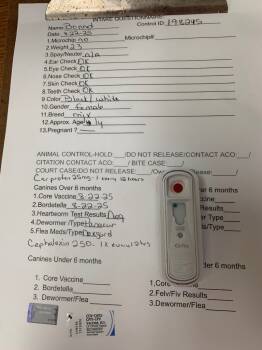 INTAKE QUESTIONNAIRE
Control ID: 198245
Name Bonnet
Date 8-22-25
1.Microchip no Microchip#
2.Weight 23
3.Spay/Neuter n/a
4.Ear Check OK
5.Eye Check OK
6.Nose Check OK
7.Skin Check OK
8.Teeth Check OK
9 Color Black/white
10.Gender female
11.Breed mix
12.Approx. Age 1y
13.Pregnant ?
ANIMAL CONTROL-HOLD /DO NOT RELEASE/CONTACT ACO
CITATION CONTACT ACO- / BITE CASE /
COURT CASE/DO NOT RELEASE:
Carprofen 25mg - 1 every 12 hours
Canines Over 6 months er 6 months
1.Core Vaccine 8-22-25
2.Bordetella 8-22-25
3.Heartworm Test Results Neg
4.Dewormer/Type
5.Flea Meds/Type
Cephalexin 250 - 1x every 12 hrs
Canines Under 6 months der 6 months
1. Core Vaccine 1.Core
2. Bordetella 2.Felv/Fiv Results
3. Dewormer/Flea 3.Dewormer/Flea